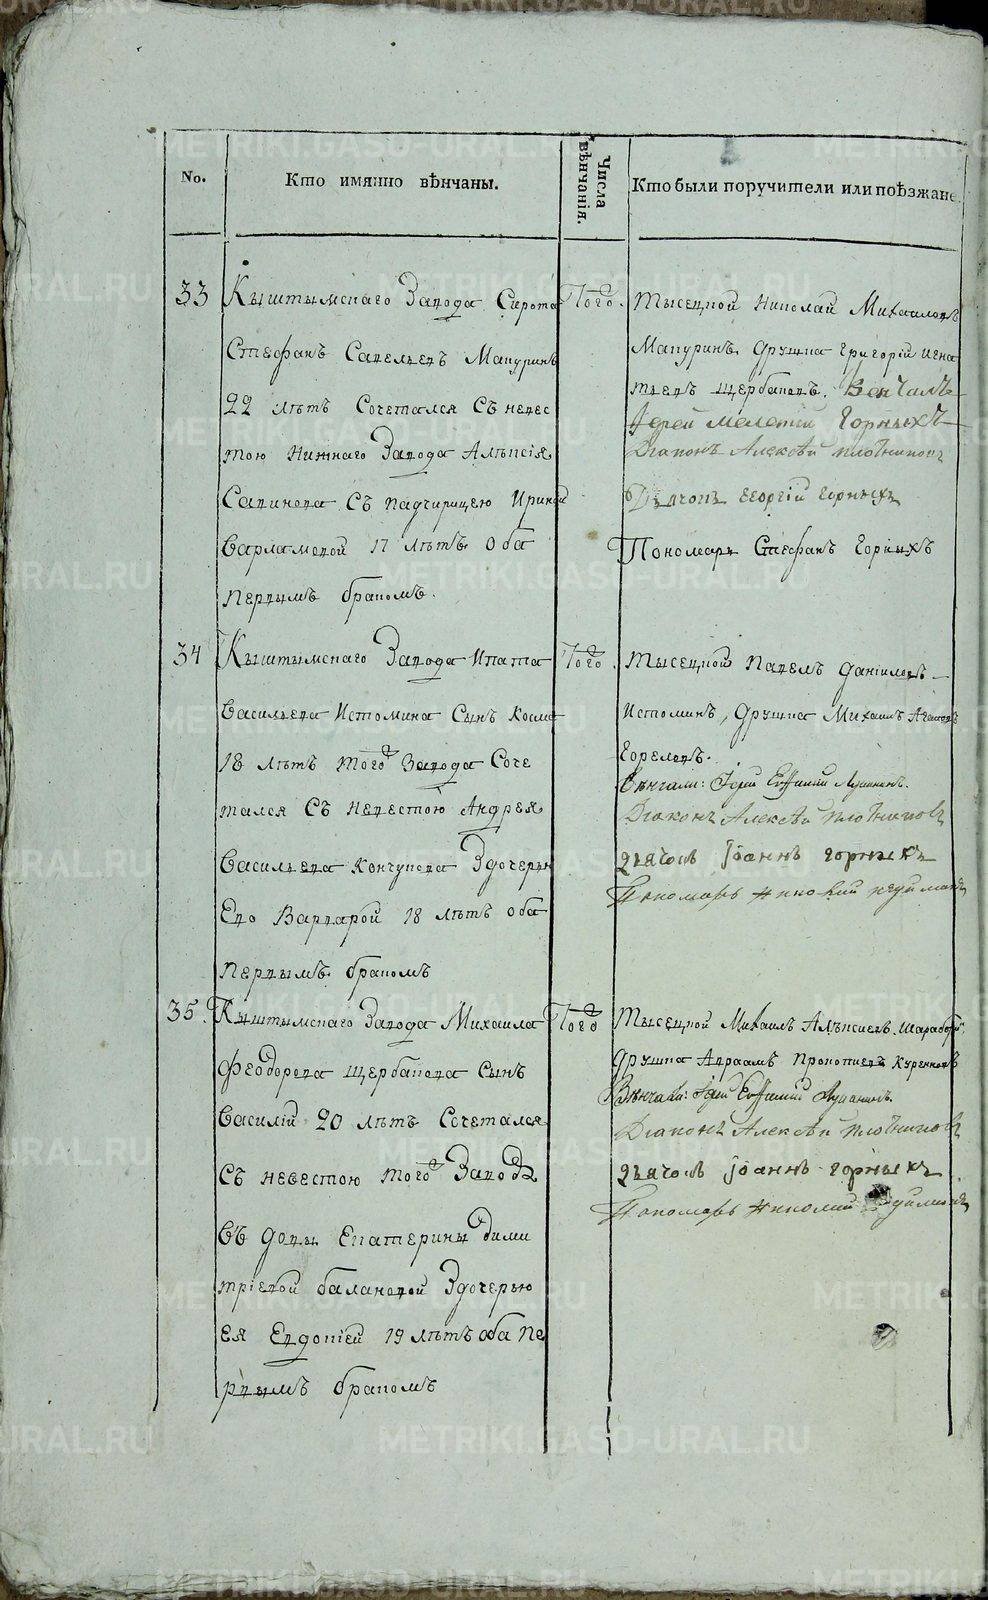 No.
Кто имянно вѣнчаны.
Числа вѣнчанія.
Кто были поручители или поѣзжане.
33
Кыштымскаго Завода Сирота
Стефанъ Савельевъ Мапуринъ
22 лѣтъ Сочетался Съ невес
тою Нижнаго Завода Алѣксія
Савинова Съ падчирицею Ириной
Варламовой 17 лѣтъ Оба
первымъ бракомъ.
Того.
Тысецкой Николай Михаиловъ
Мапуринъ дружка Григорій Игна
тьевъ Щербаковъ. Венчалъ
Іерей Мелетій Горныхъ
Діаконъ Алексѣй Плотниковъ
Дьячокъ Георгій Горныхъ
Пономарь Стефанъ Горныхъ
34
Кыштымскаго Завода Ипата
Васильева Истомина Сынъ Косма
18 лѣтъ того Завода Соче
тался Съ Невестою Андрея
Васильева Кончукова Здочерью
Его Варварой 18 лѣтъ оба
первымъ бракомъ
Того.
Тысецкой Павелъ Даніиловъ
Истоминъ, дружка Михаилъ
Гореловъ.
Вѣнчали: Іерей Евфимий
Діаконъ Алексѣй Плотниковъ
дьячокъ Іоаннъ горныхъ
Пономарь Николай
35.
Кыштымскаго Завода Михаила
Феодорова Щербакова Сынъ
Василій 20 лѣтъ Сочетался
Съ невестою того Завода
въ довы Екатерины Дими
тріевой балановой Здочерью
Ея Евдокіей 19 лѣтъ оба пе
рвымъ бракомъ
Того
Тысецкой Михаилъ Алѣксиевъ
Дружка Авраамъ Прокопиевъ Куренковъ
Вѣнчали: Іерей Евфимий
Діаконъ Алексѣй Плотниковъ
дьячокъ Іоаннъ горныхъ
Пономарь Николай
METRIKI.GASO-URAL.RU